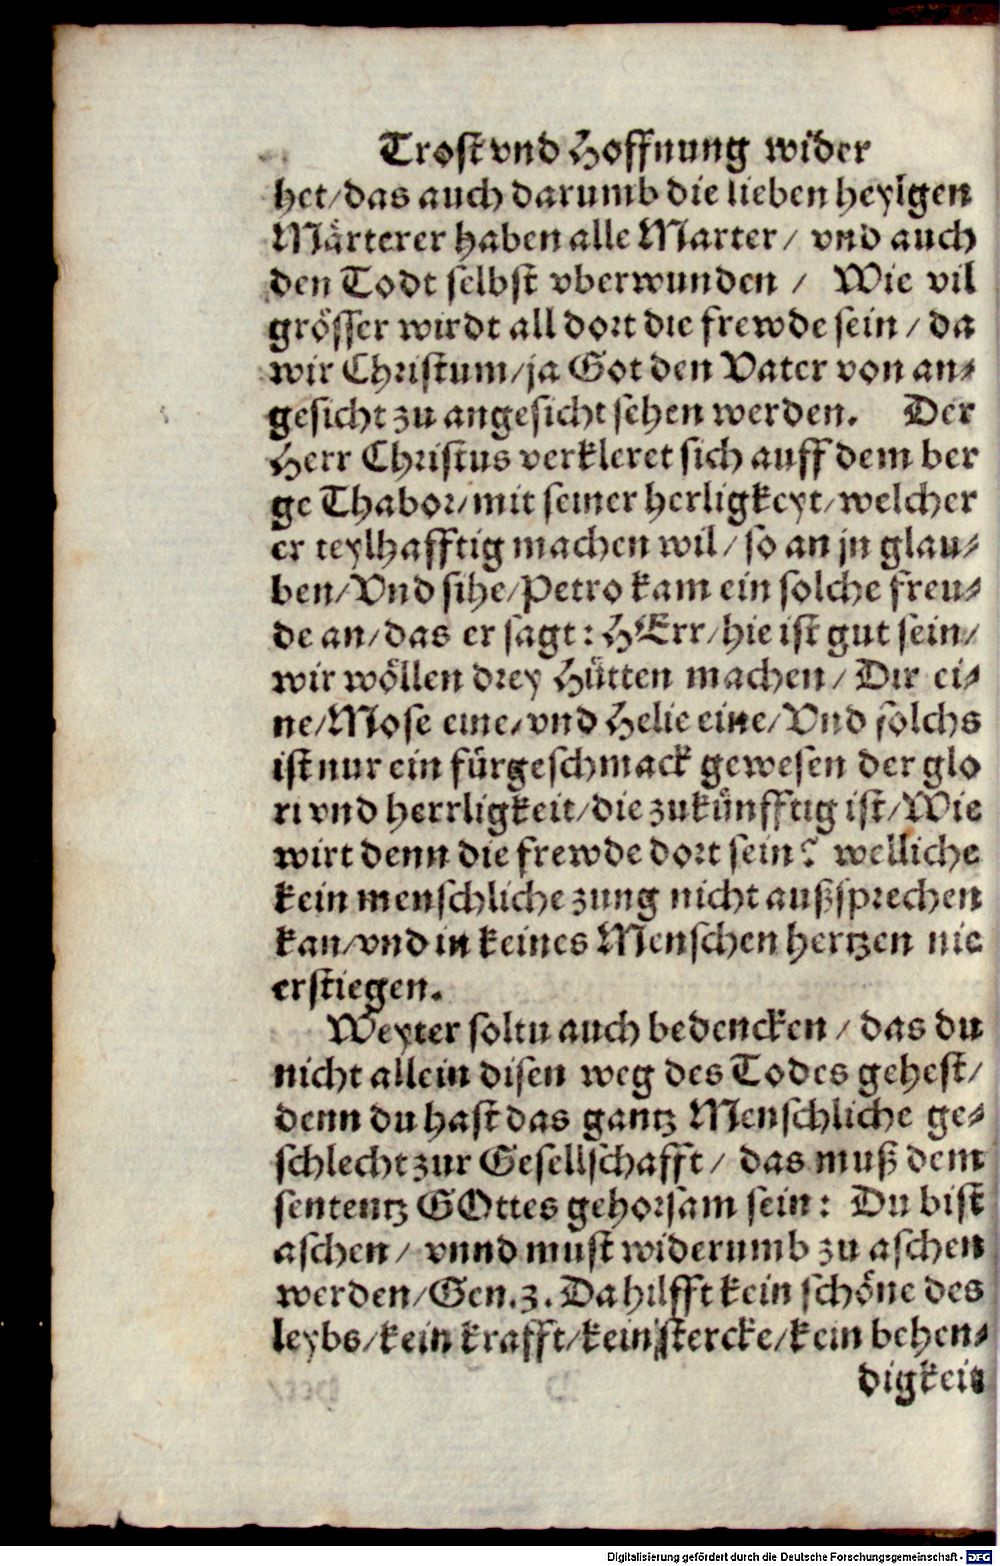 Trost vnd Hoffnung wider
het/das auch darumb die lieben heylgen
Märterer haben alle Marter/ vnd auch
den Todt selbst vberwunden / Wie vil
grösser wirdt all dort die frewde sein / da
wir Christum/ja Got den Vater von an⸗
gesicht zu angesicht sehen werden. Der
Herr Christus verkleret sich auff dem ber
ge Thabor/mit seiner herligkeyt/welcher
er teylhafftig machen wil/ so an jn glau⸗
ben/Vnd sihe/Petro kam ein solche freu⸗
de an/das er sagt: HErr/hie ist gut sein/
wir wöllen drey Hütten machen/ Dir ei⸗
ne/Mose eine/vnd Helie eine/Vnd solchs
ist nur ein fürgeschmack gewesen der glo
ri vnd herrligkeit/die zukünfftig ist/Wie
wirt denn die frewde dort sein? welliche
kein menschliche zung nicht außsprechen
kan/vnd in keines Menschen hertzen nie
erstiegen.
Weyter soltu auch bedencken / das du
nicht allein disen weg des Todes gehest/
denn du hast das gantz Menschliche ge⸗
schlecht zur Gesellschafft/ das muß dem
sententz GOttes gehorsam sein: Du bist
aschen/ vnnd must widerumb zu aschen
werden/Gen.3. Da hilfft kein schöne des
leybs/kein krafft/kein stercke/kein behen⸗
digkeit
Digitalisierung gefördert durch die Deutsche Forschungsgemeinschaft - DFG